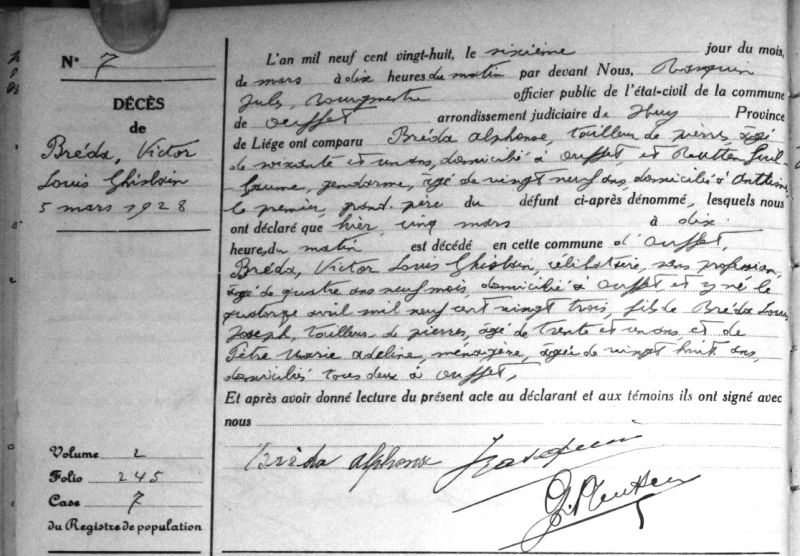 N° 7
DÉCÈS
de
Bréda, Victor
Louis Ghislain
5 mars 1928
L'an mil neuf cent vingt-huit, le sixième jour du mois,
de mars à dix heures du matin par devant Nous,
Jules, Bourgmestre officier public de l'état-civil de la commune
de Ouffet arrondissement judiciaire de Huy Province
de Liége ont comparu Bréda Alphonse, tailleur de pierres, âgé
de soixante et un ans, domicilié à Ouffet, et Guil
laume, gendarme, âgé de vingt neuf ans, domicilié à Anthisnes
le premier, grand père du défunt ci-après dénommé, lesquels nous
ont déclaré que hier, cinq mars à dix
heures du matin est décédé en cette commune d'Ouffet,
Bréda, Victor Louis Ghislain, célibataire, sans profession,
âgé de quatre ans neuf mois, domicilié à Ouffet et y né le
quatorze avril mil neuf cent vingt trois, fils de Bréda Louis
Joseph, tailleur de pierres, âgé de trente et un ans, et de
Pêtre Marie Adeline, ménagère, âgée de vingt huit ans,
domiciliés tous deux à Ouffet,
Et après avoir donné lecture du présent acte au déclarant et aux témoins ils ont signé avec
nous
Bréda Alphonse
Volume 2
Folio 245
Case 7
du Registre de population